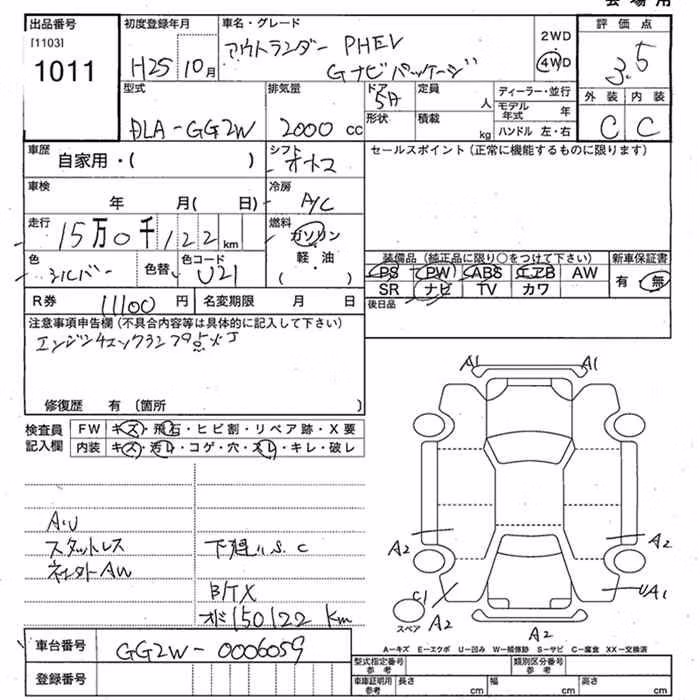 会場用
出品番号
[1103]
1011
初度登録年月
H25 10月
車名・グレード
アウトランダー PHEV
Gナビパッケージ
2WD
4WD
評価点
3.5
外装 内装
C C
型式
DLA-GG2W
排気量
2000 cc
ドア
5D
形状
定員
人
積載
kg
ディーラー・並行
モデル年式 年
ハンドル 左・右
車歴
自家用・( )
シフト
オートマ
セールスポイント(正常に機能するものに限ります)
車検
年 月( 日)
冷房
A/C
走行
15万0千122km
燃料
ガソリン
軽・油
( )
色
シルバー
色替
色コード
U21
装備品 (純正品に限り○をつけて下さい)
PS PW ABS エアB AW
SR ナビ TV カワ
新車保証書
有・無
後日品
R券 11100 円
名変期限 月 日
注意事項申告欄(不具合内容等は具体的に記入して下さい)
エンジンチェックランプ点灯
修復歴 有 (箇所 )
検査員
記入欄
FW キズ・飛石・ヒビ割・リペア跡・X要
内装 キズ・汚レ・コゲ・穴・スレ・キレ・破レ
A1 A1
スタットレス
下廻りS.C
AW
A2 A2
C1 UA1
スペア
A2
A2
150122 km
車台番号
GG2W-0006059
登録番号
A-キズ E-エクボ U-凹み W-補修跡 S-サビ C-腐食 XX-交換済
型式指定番号
参考
類別区分番号
参考
車庫証明用
参考
長さ cm 幅 cm 高さ cm